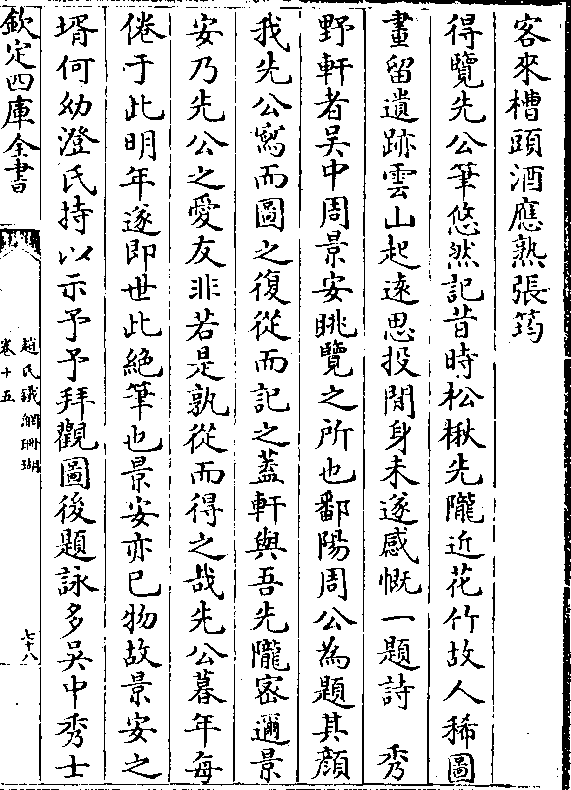 客來槽頭酒應熟張筠
得覽先公筆悠然記昔時松楸先隴近花竹故人稀圖
畫留遺跡雲山起遠思投閒身未遂感慨一題詩　秀
野軒者吳中周景安眺覽之所也鄱陽周公為題其顏
我先公寫而圖之復從而記之蓋軒與吾先隴密邇景
安乃先公之愛友非若是孰從而得之哉先公暮年每
倦于此明年遂即世此絶筆也景安亦已物故景安之
壻何幼澄氏持以示予予拜觀圖後題詠多吳中秀士
欽定四庫全書
趙氏鐵網珊瑚
卷十五
七十八